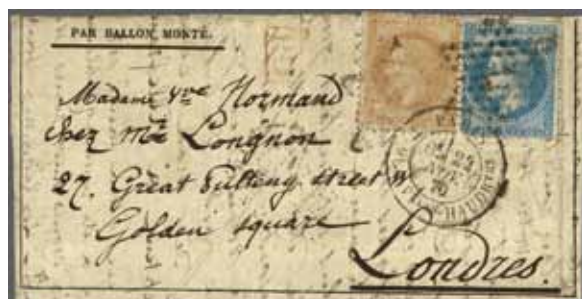 PAR BALLON MONTÉ.
Madame Vve Normand
Chez Mme Longnon
27. Great Pulteny Street W
Golden square
Londres.